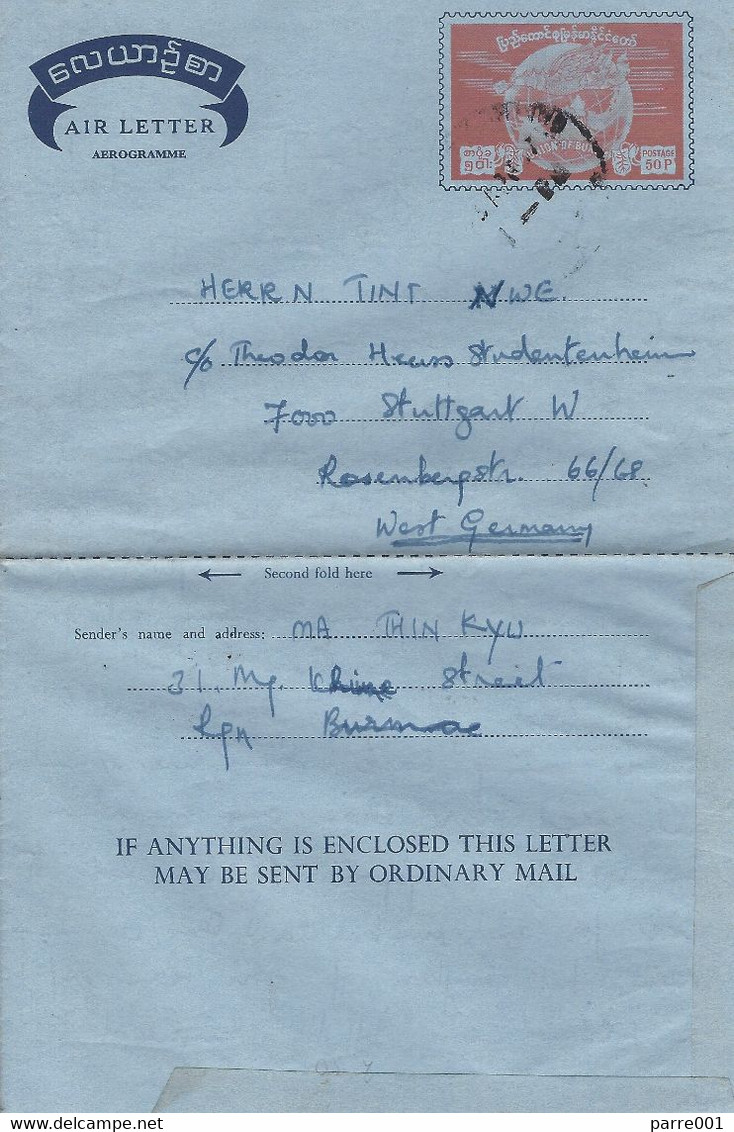 လေယာဉ်စာ
AIR LETTER
AEROGRAMME
ပြည်ထောင်စုမြန်မာနိုင်ငံတော်
UNION OF BU
POSTAGE
50 P
HERR N TINT NWE
c/o Theodor Heuss Studentenheim
7000 Stuttgart W
Rosenbergstr. 66/68
West Germany
Second fold here
Sender's name and address: MA THIN KYU
31. Mg. Khine Street
Rgn Burma
IF ANYTHING IS ENCLOSED THIS LETTER
MAY BE SENT BY ORDINARY MAIL
Delcampe.net
parre001